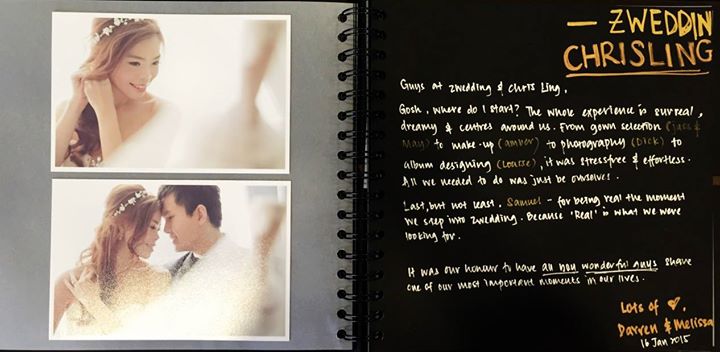 — ZWEDDIN
CHRISLING
Guys at zwedding & Chris Ling,
Gosh, where do I start? The whole experience is surreal,
dreamy & centres around us. From gown selection (Jass &
May) to make-up (amber) to photography (Dick) to
album designing (Louise), it was stressfree & effortless.
All we needed to do was just be ourselves.
Last, but not least, Samuel - for being real the moment
we step into zwedding. Because 'Real' is what we were
looking for.
It was our honour to have all you wonderful guys share
one of our most important moments in our lives.
Lots of ♥,
Darren & Melissa
16 Jan 2015